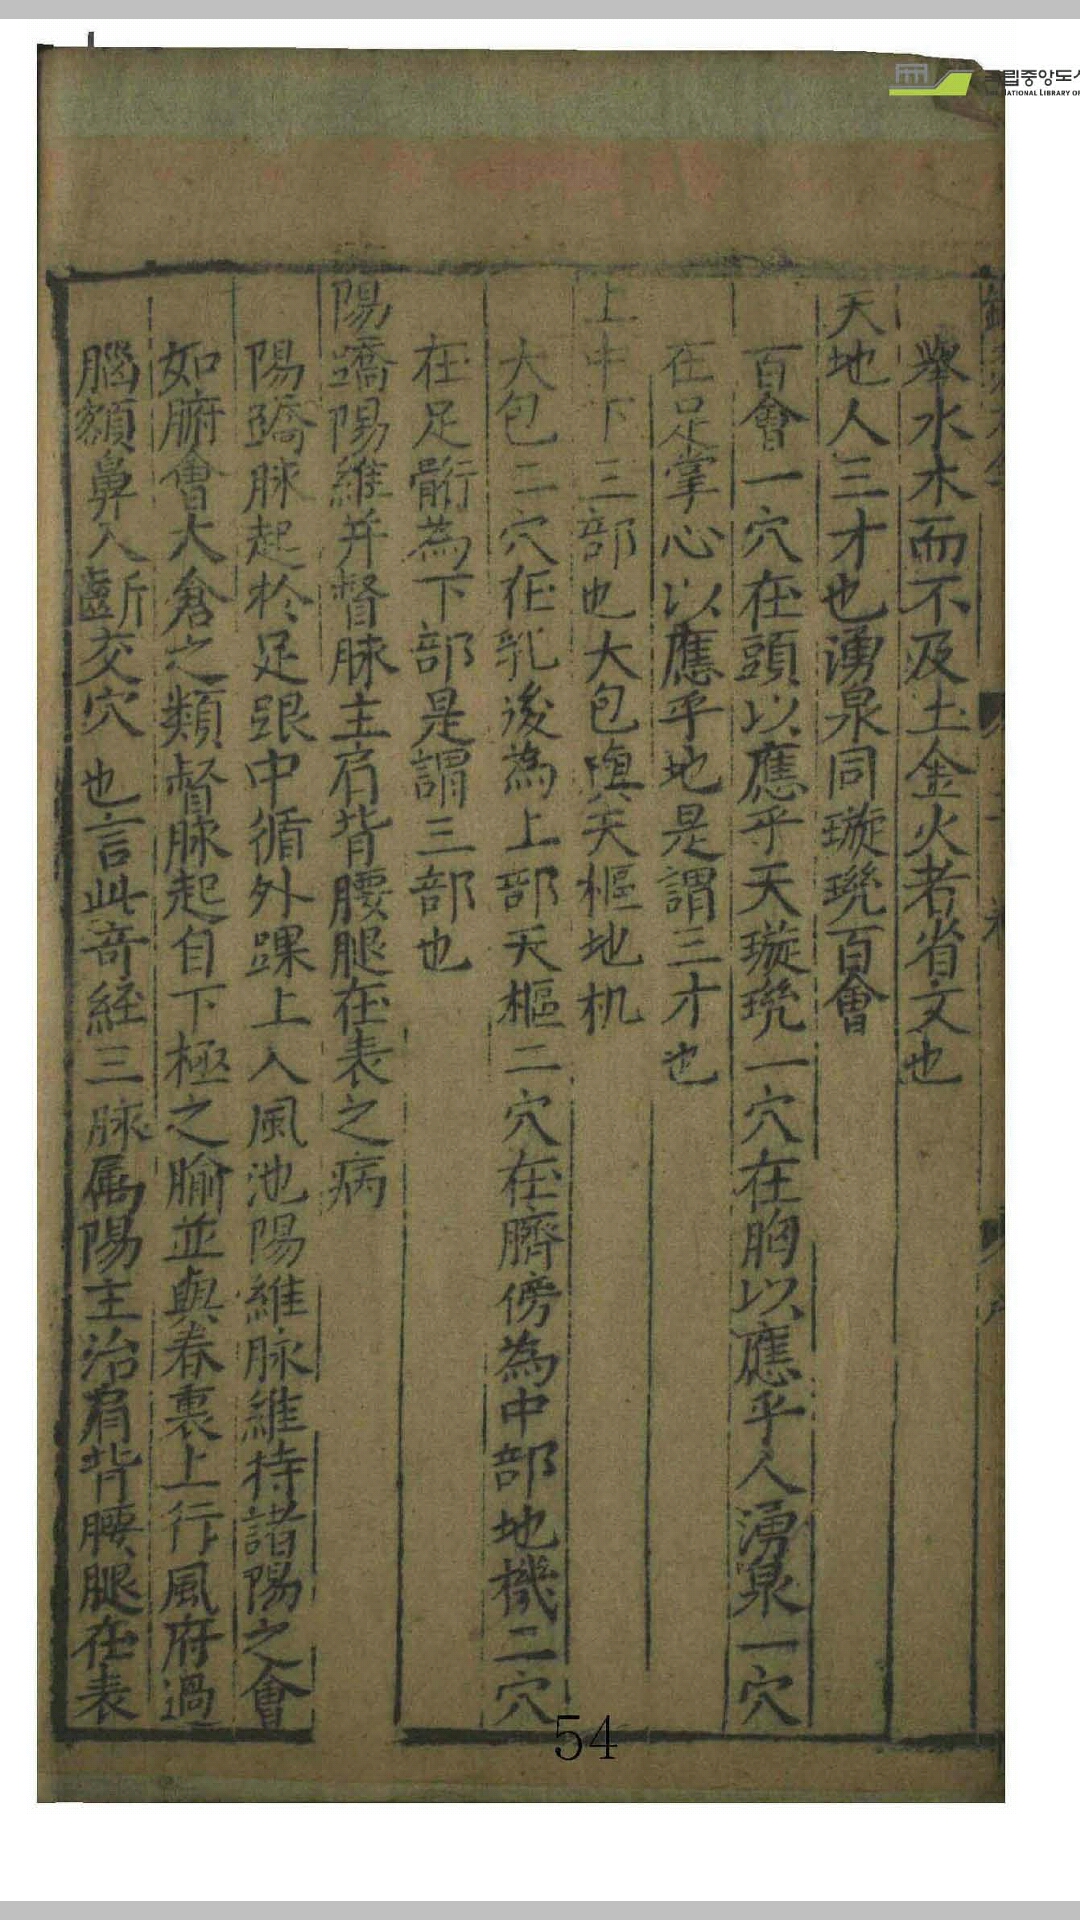 舉水木而不及土金火者省文也
天地人三才也湧泉同璇璣百會
百會一穴在頭以應乎天璇璣一穴在胸以應乎人湧泉一穴
在足掌心以應乎地是謂三才也
上中下三部也大包與天樞地机
大包二穴在乳後為上部天樞二穴在臍傍為中部地機二穴
在足䯒為下部是謂三部也
陽蹻陽維并督脉主肩背腰腿在表之病
陽蹻脉起於足跟中循外踝上入風池陽維脉維持諸陽之會
如腑會大倉之類督脉起自下極之腧並與脊裏上行風府過
腦額鼻入齗交穴也言此奇經三脉屬陽主治肩背腰腿在表
국립중앙도서
THE NATIONAL LIBRARY OF
54